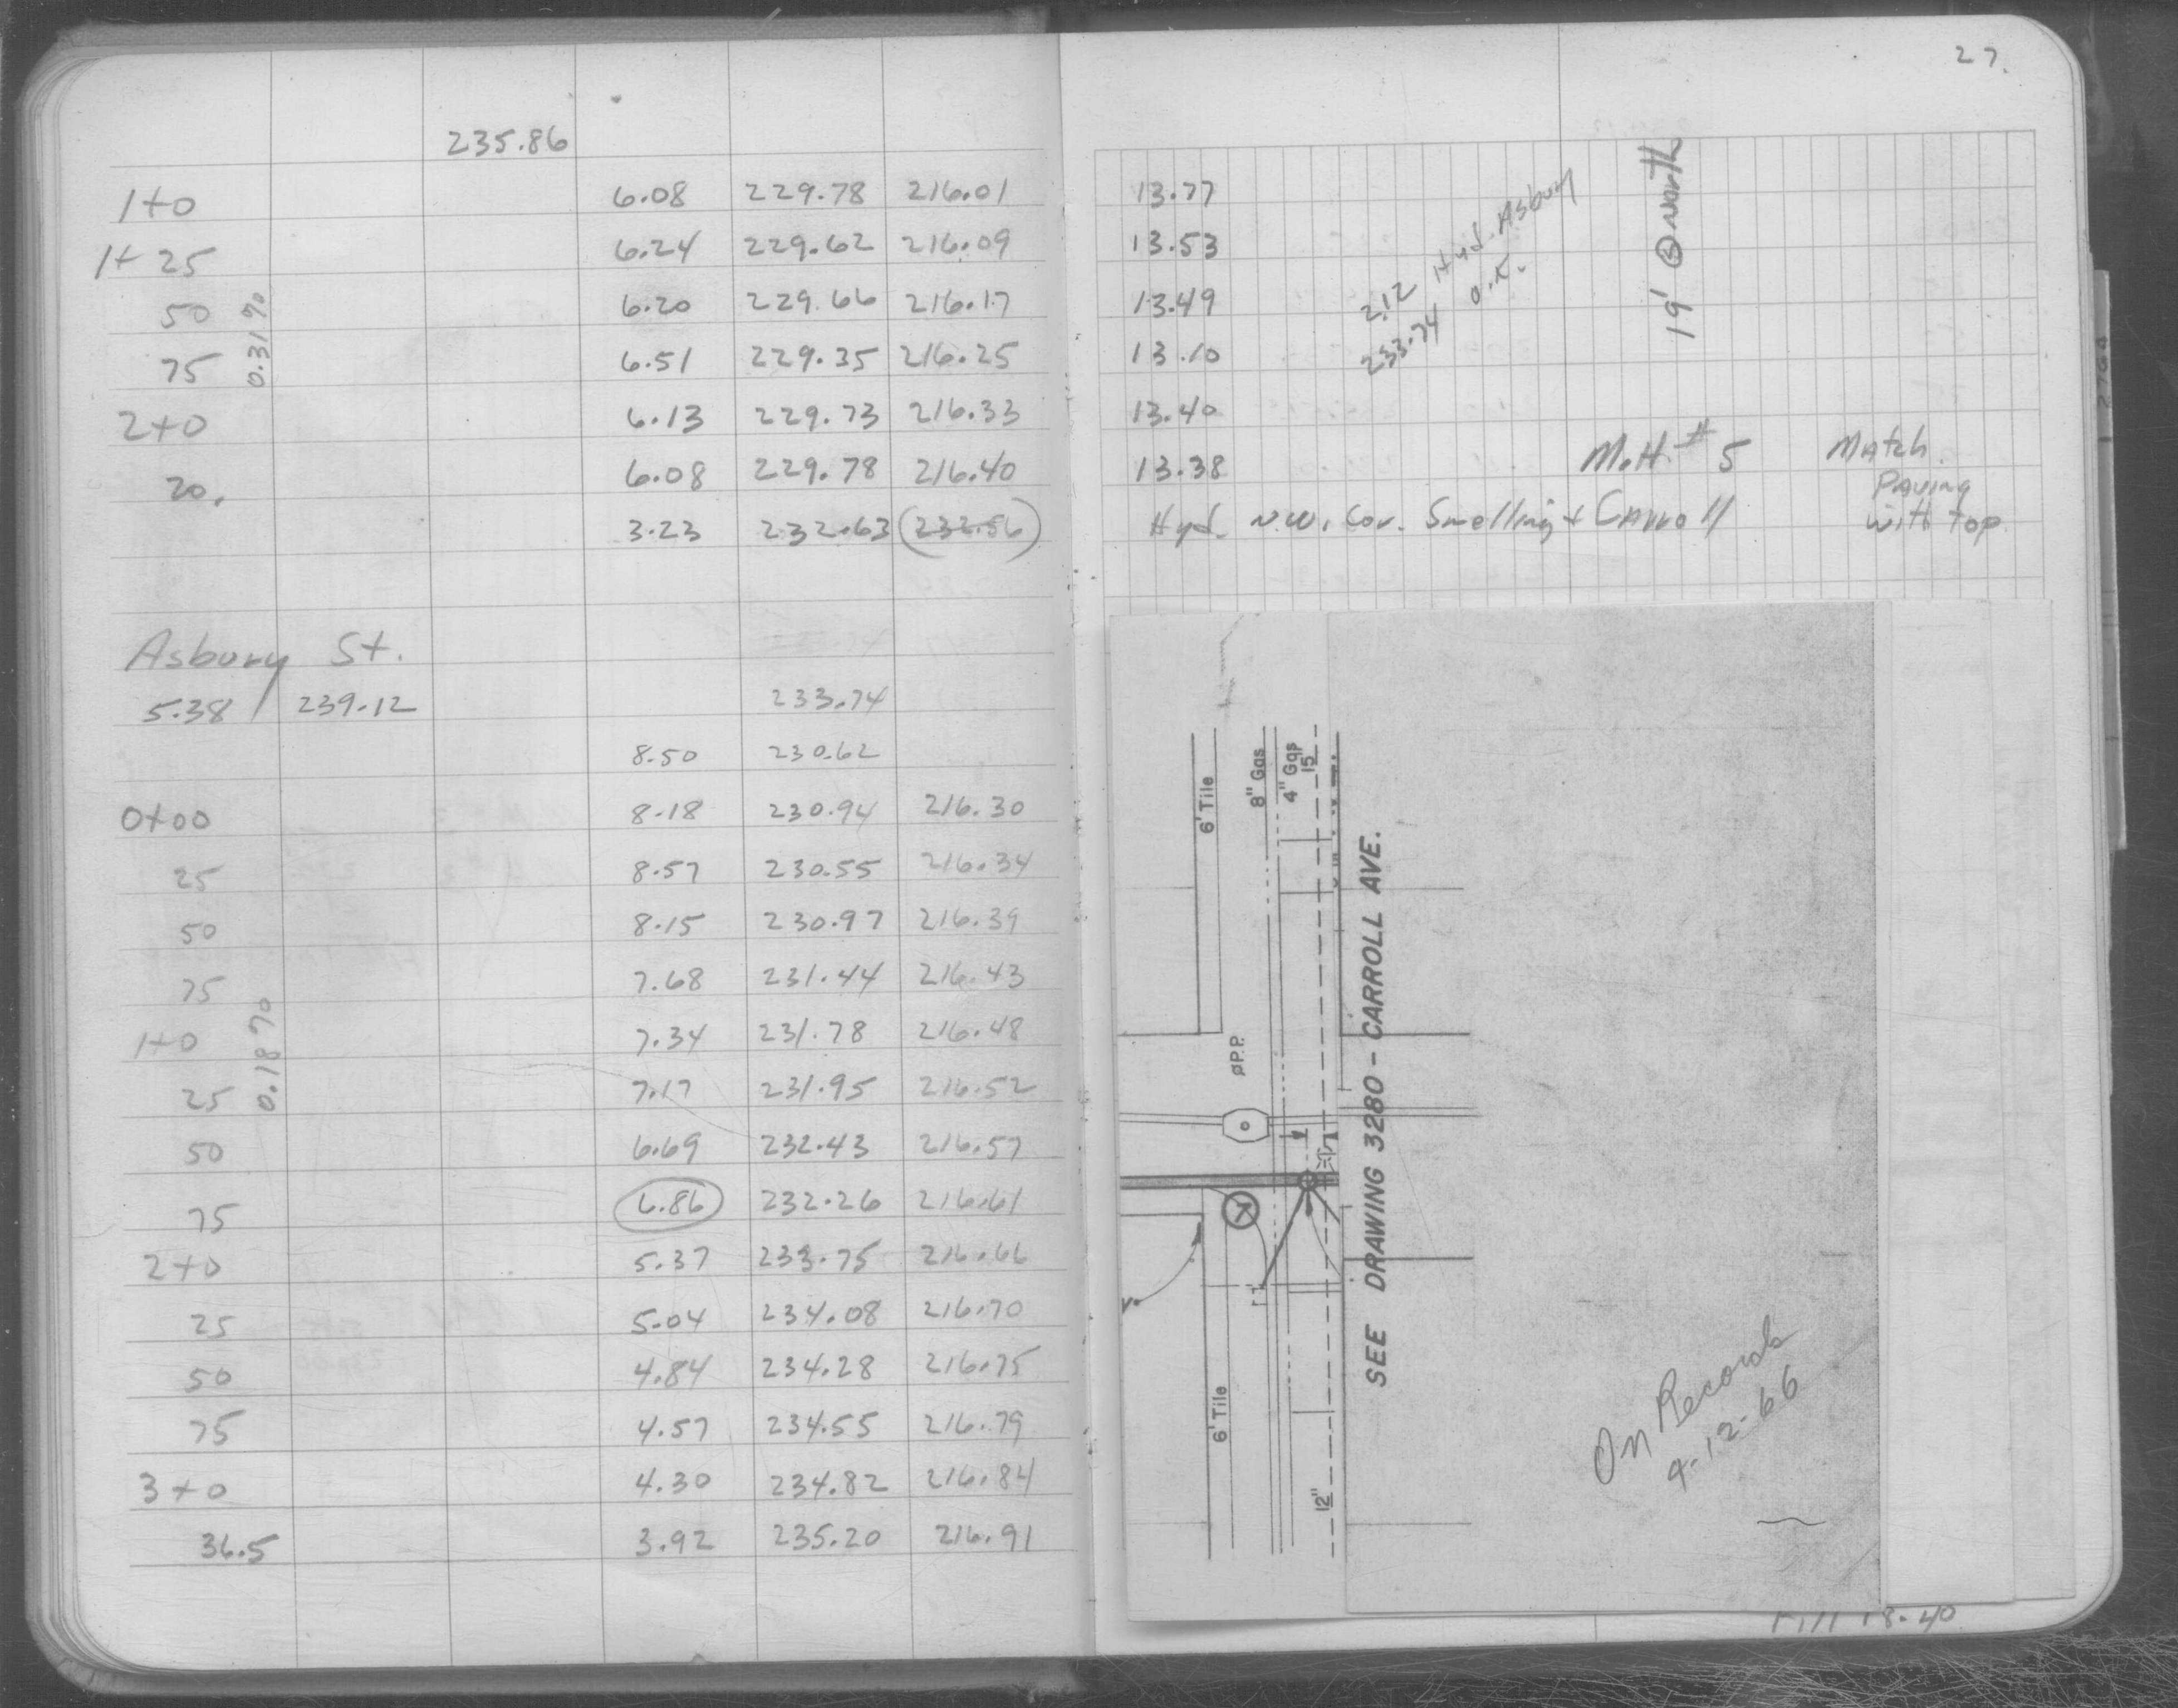 27.
235.86
1+0 6.08 229.78 216.01 13.77
1+25 6.24 229.62 216.09 13.53
50 6.20 229.66 216.17 13.49
75 6.51 229.35 216.25 13.10
0.31%
2+0 6.13 229.73 216.33 13.40
20. 6.08 229.78 216.40 13.38
3.23 232.63 (232.56) Hyd. N.W. Cor. Snelling + Carroll
2.12 Hyd. Asbury
233.74 O.K.
19' @ North
M.H. # 5
Match
Paving
with top
Asbury St.
5.38 239.12 233.74
8.50 230.62
0+00 8.18 230.94 216.30
25 8.57 230.55 216.34
50 8.15 230.97 216.39
75 7.68 231.44 216.43
1+0 7.34 231.78 216.48
25 7.17 231.95 216.52
0.18%
50 6.69 232.43 216.57
75 6.86 232.26 216.61
2+0 5.37 233.75 216.66
25 5.04 234.08 216.70
50 4.84 234.28 216.75
75 4.57 234.55 216.79
3+0 4.30 234.82 216.84
36.5 3.92 235.20 216.91
6' Tile
8" Gas
4" Gas
15"
ØP.P.
6' Tile
12"
SEE DRAWING 3280 - CARROLL AVE.
On Records
4-12-66
Fill 18.40